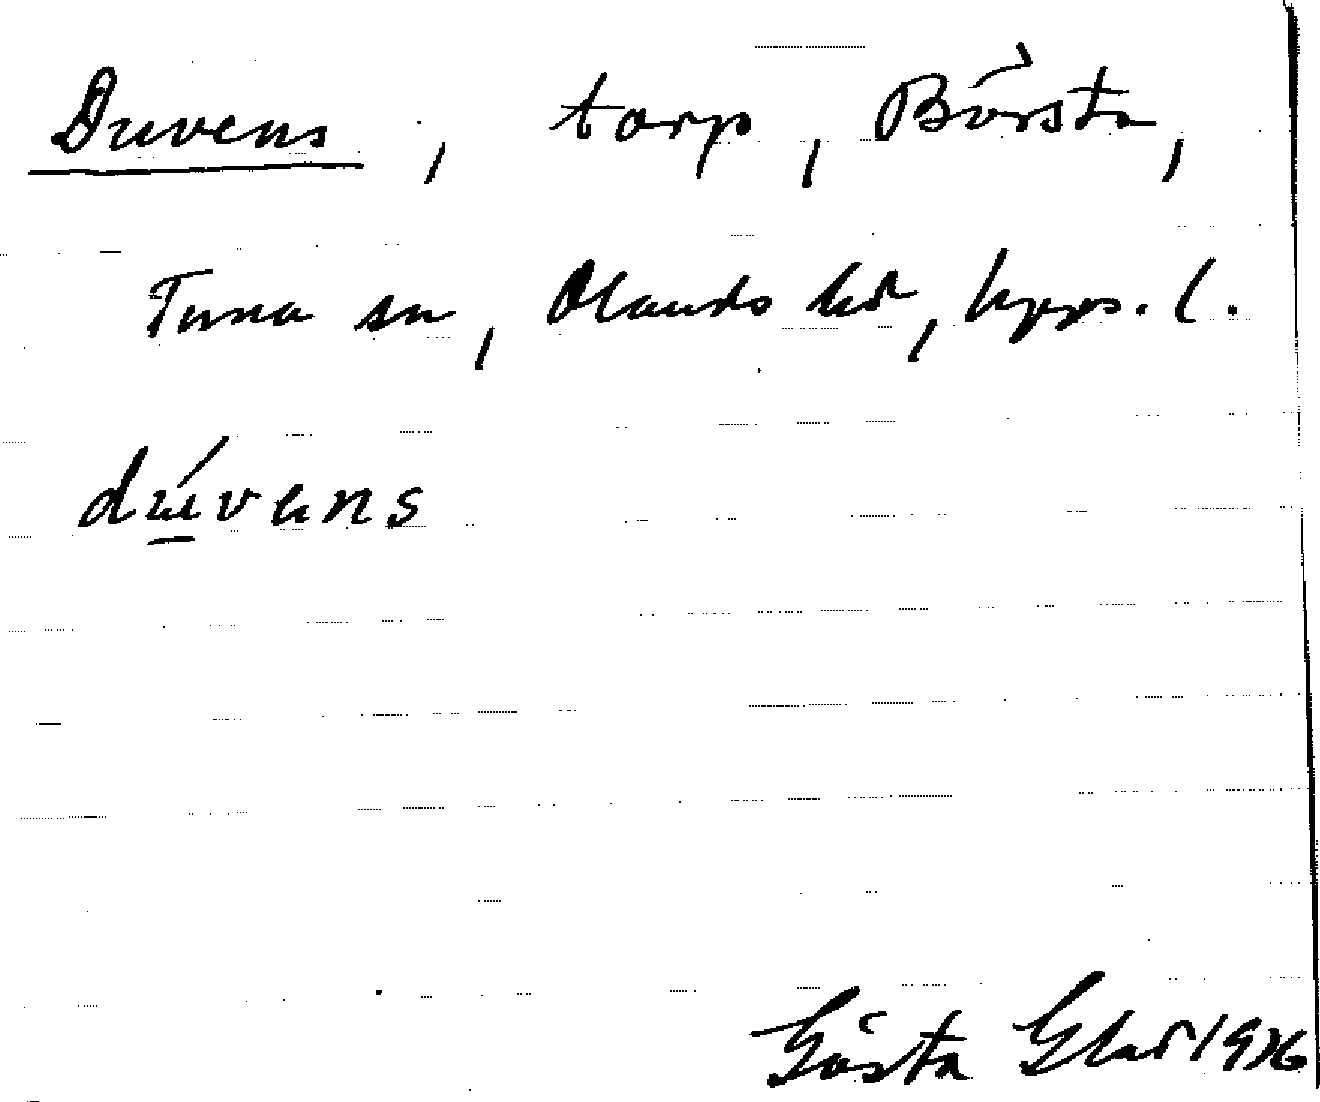 Duvens, torp, Börsta,
Tuna sn, Olands hd, Upps. l.
dúvens
Gösta Glad 1936